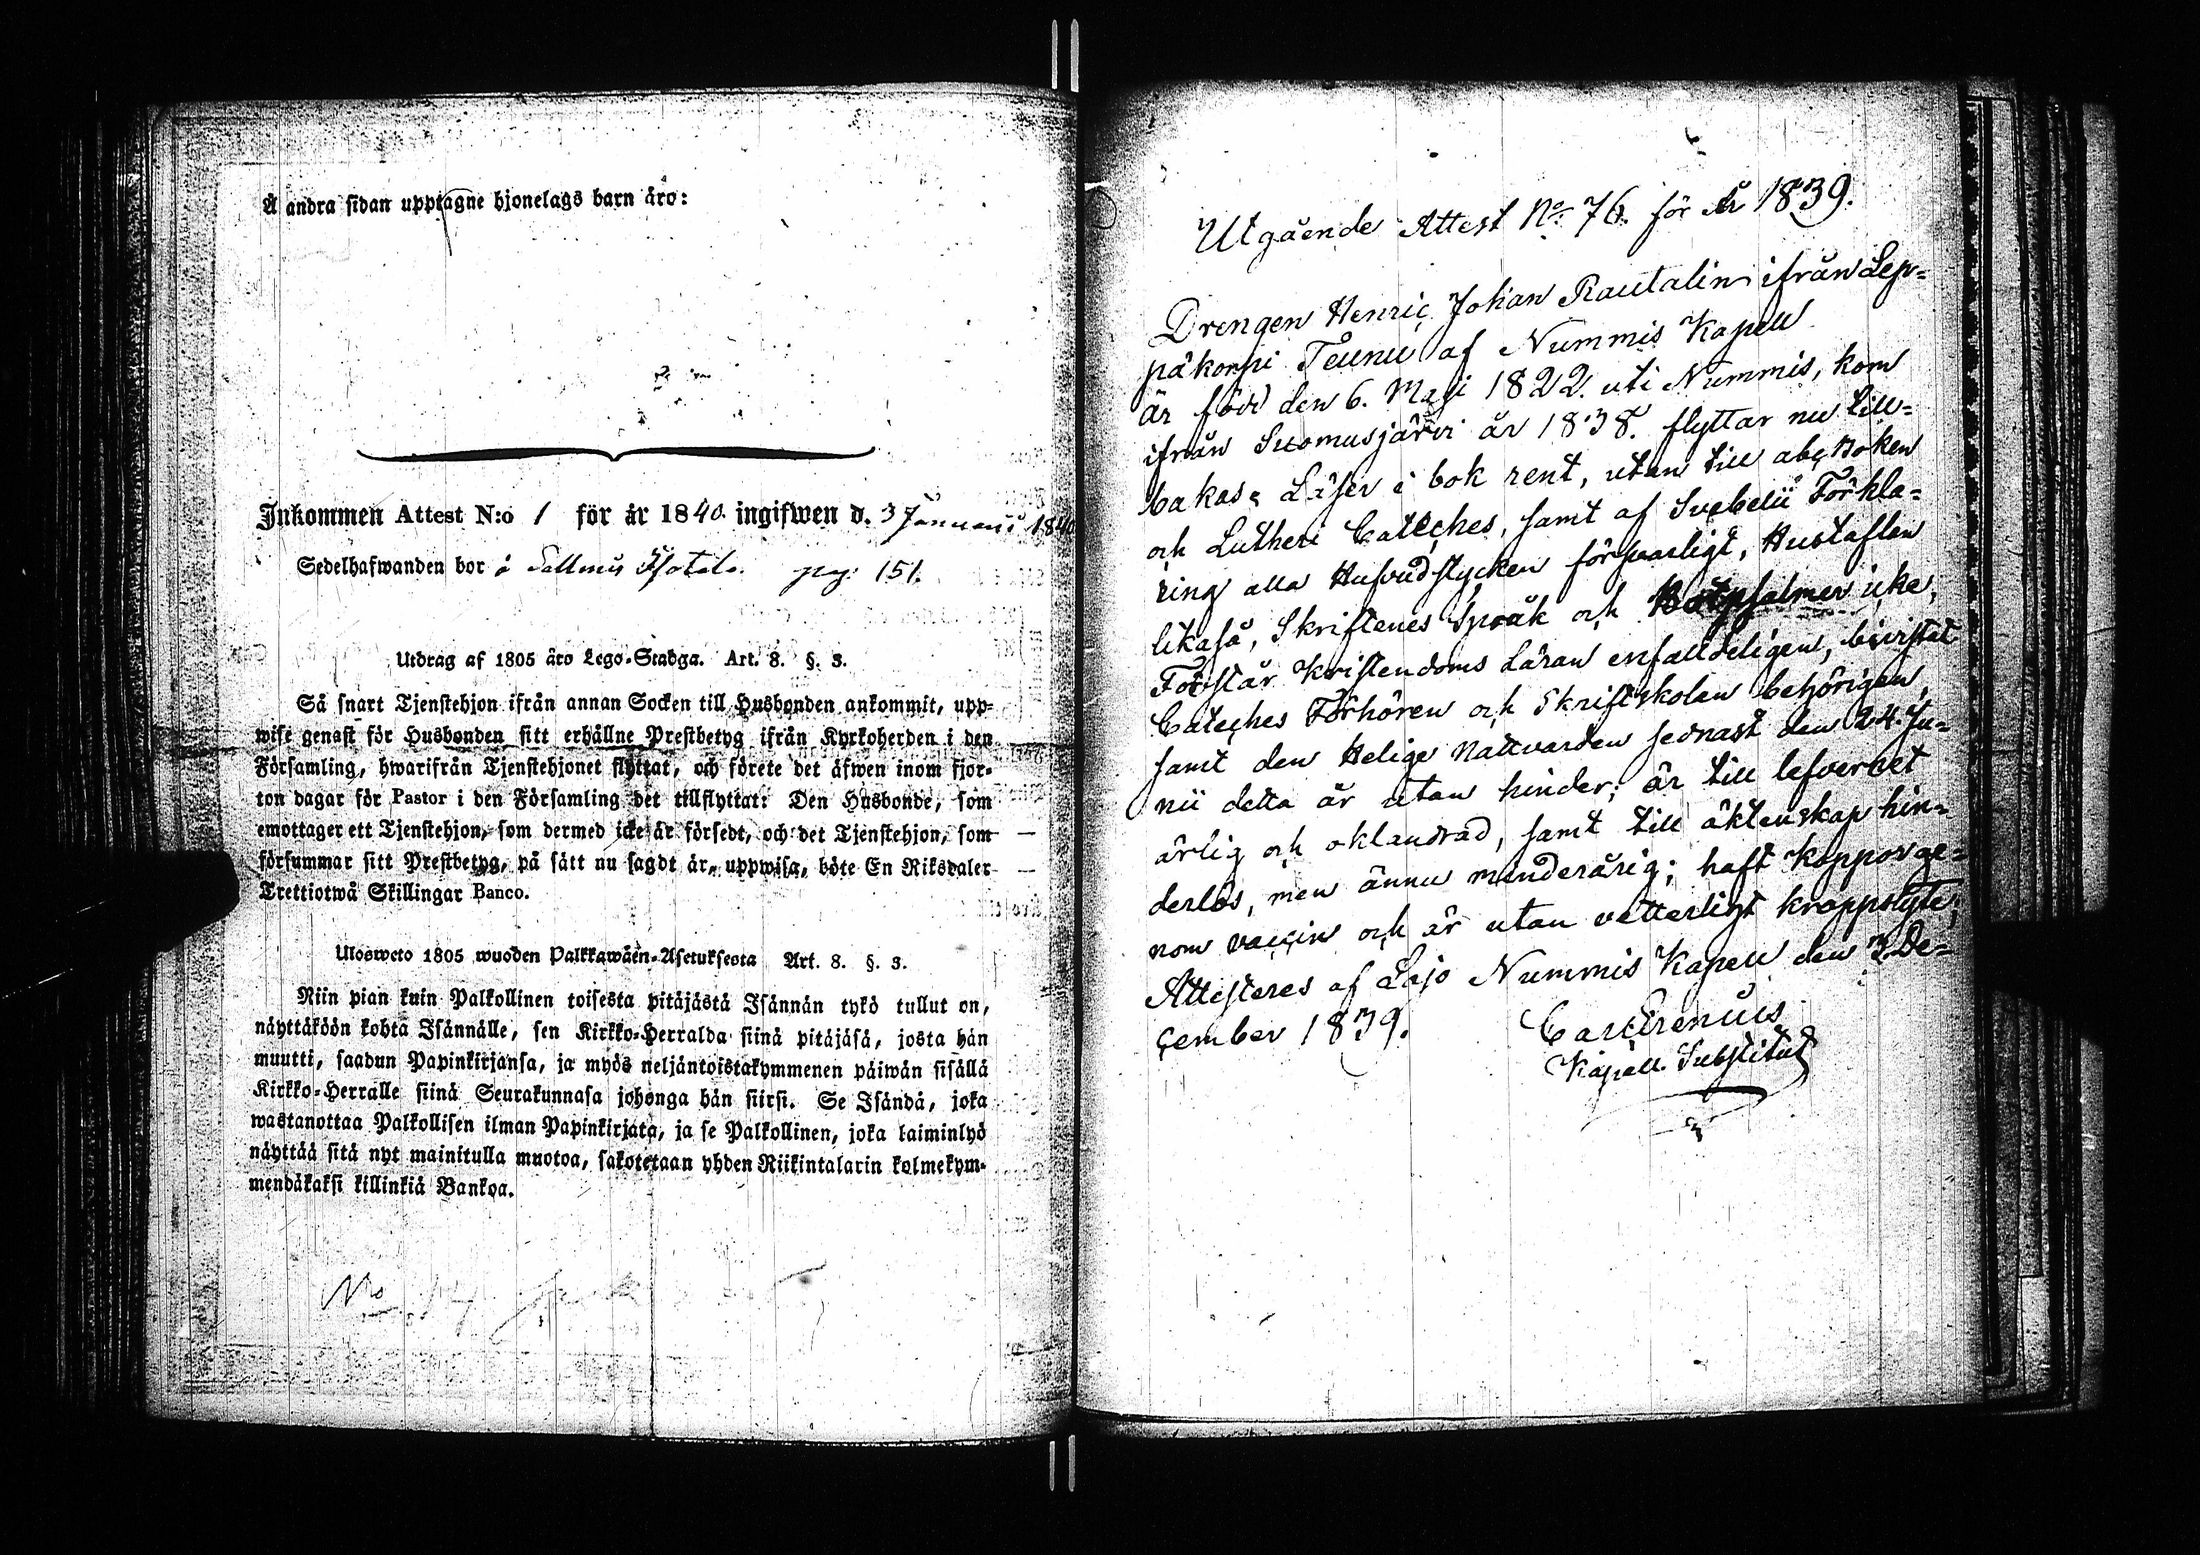 Å andra sidan upptagne hjonelags barn äro:
Inkommen Attest N:o 1 för år 1840. ingifwen d. 3 Januarii 1840
Sedelhafwanden bor i pag: 151.
Utdrag af 1805 åro Lego-Stadga. Art. 8. §. 3.
Så snart Tjenstehjon ifrån annan Socken till Husbonden ankommit, upp-
wise genast för Husbonden sitt erhållne Prestbetyg ifrån Kyrkoherden i den
Församling, hwarifrån Tjenstehjonet flyttat, och förete det äfwen inom fjor-
ton dagar för Pastor i den Församling det tillflyttat: Den Husbonde, som
emottager ett Tjenstehjon, som dermed icke är försedt, och det Tjenstehjon, som
försummar sitt Prestbetyg, på sätt nu sagdt är, uppwisa, böte En Riksdaler
Trettiotwå Skillingar Banco.
Ulosweto 1805 wuoden Palkkawäen-Asetuksesta Art. 8. §. 3.
Niin pian kuin Palkollinen toisesta pitäjästä Isännän tykö tullut on,
näyttäköön kohta Isännälle, sen Kirkko-Herralda siinä pitäjäsä, josta hän
muutti, saadun Papinkirjansa, ja myös neljäntoistakymmenen päiwän sisällä
Kirkko-Herralle siinä Seurakunnasa johonga hän siirsi. Se Isändä, joka
wastanottaa Palkollisen ilman Papinkirjata, ja se Palkollinen, joka laiminlyö
näyttää sitä nyt mainitulla muotoa, sakotetaan yhden Riikintalarin kolmekym-
mendäkaksi killinkiä Bankoa.
No
Utgående Attest No 76. för År 1839.
Drengen Henric Johan Rautalin ifrån Lep-
päkorpi Teunu af Nummis Kapell
är född den 6. Maji 1822. uti Nummis, kom
ifrån Suomusjärvi år 1838. flyttar nu till-
bakas. Läser i bok rent, utan till abc Boken
och Lutheri Cateches, samt af Svebelii Förkla-
ring alla Hufvudstycken försvarligt, Hustaflan
likaså, Skriftenes Språk och Botpsalmer icke,
Förstår Kristendoms Läran enfalldeligen, bivistat
Cateches Förhören och Skriftskolan behörigen,
samt den Helige Nattvarden sednast den 24. Ju-
nii detta år utan hinder; är till lefvernet
ärlig och oklandrad, samt till äktenskap hin-
derlös, men ännu minderårig; haft Koppor ge-
nom vaccin och är utan vetterligt kroppslyte;
Attesteres af Lojo Nummis Kapell den 3. De-
cember 1839.
Carl Erenius
Kapell. Substitut